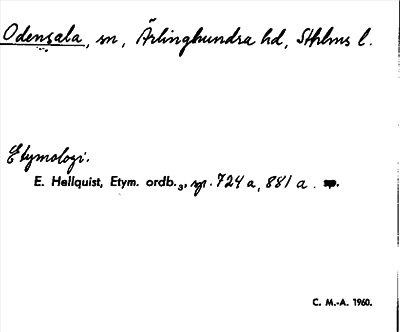 Odensala, sn, Ärlinghundra hd, Sthlms l.
Etymologi.
E. Hellquist, Etym. ordb.₃, sp. 724 a, 881 a.
C. M.-A. 1960.